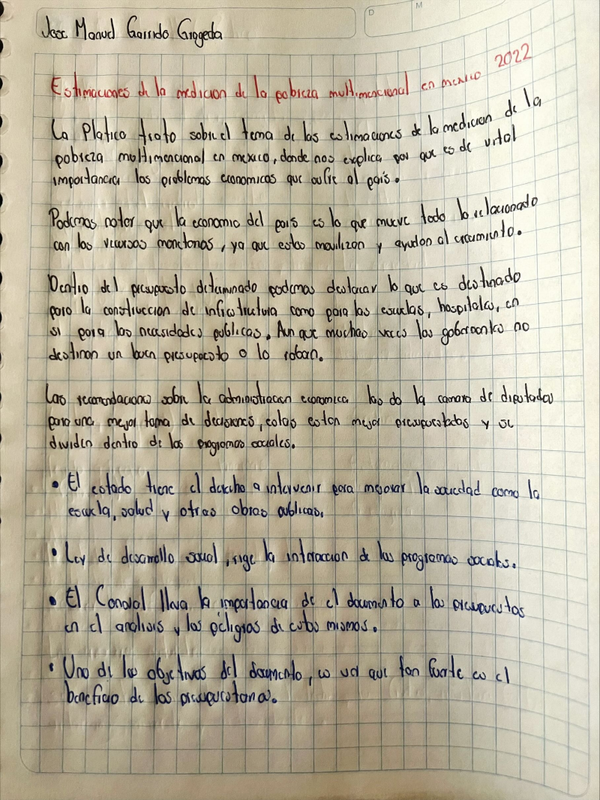 Jose Manuel Garrido Grageda
D M
Estimaciones de la medicion de la pobreza multimencional en mexico 2022
La Platica trato sobre el tema de las estimaciones de la medicion de la
pobreza multimencional en mexico, donde nos explica por que es de vital
importancia los problemas economicos que sufre el país.
Podemos notar que la economia del pais es lo que mueve todo lo relacionado
con los recursos monetarios, ya que estos movilizan y ayudan al crecimiento.
Dentro del presupuesto determinado podemos destacar lo que es destinado
para la construccion de infraestructura como para las escuelas, hospitales, en
si para las necesidades publicas. Aun que muchas veces los gobernantes no
destinan un buen presupuesto o lo roban.
Las recomendaciones sobre la administracion economica las da la camara de diputados
para una mejor toma de decisiones, estas estan mejor presupuestadas y se
dividen dentro de los programas sociales.
• El estado tiene el derecho a intervenir para mejorar la sociedad como la
escuela, salud y otras obras publicas.
• Ley de desarrollo social, rige la interaccion de los programas sociales.
• El Coneval lleva la importancia de el documento a los presupuestos
en el analisis y los peligros de estos mismos.
• Uno de los objetivos del documento, es ver que tan fuerte es el
beneficio de los